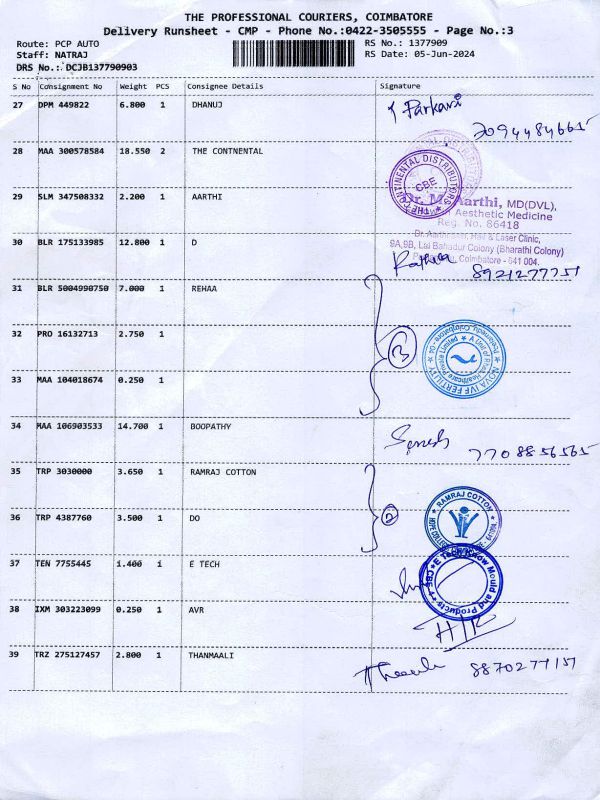 THE PROFESSIONAL COURIERS, COIMBATORE
Delivery Runsheet - CMP - Phone No.:0422-3505555 - Page No.:3
Route: PCP AUTO
Staff: NATRAJ
DRS No.: DCJB137790903
RS No.: 1377909
RS Date: 05-Jun-2024
S No Consignment No Weight PCS Consignee Details Signature
27 DPM 449822 6.800 1 DHANUJ
28 MAA 300578584 18.550 2 THE CONTNENTAL
CONTINENTAL DISTRIBUTORS
CBE
29 SLM 347508332 2.200 1 AARTHI
Aarthi, MD(DVL),
Aesthetic Medicine
Reg. No: 86418
Hair & Laser Clinic,
9A,9B, Lal Bahadur Colony (Bharathi Colony)
Coimbatore - 641 004.
30 BLR 175133985 12.800 1 D
8921277751
31 BLR 5004990750 7.000 1 REHAA
32 PRO 16132713 2.750 1
3
NOVA IVF FERTILITY
33 MAA 104018674 0.250 1
34 MAA 106903533 14.700 1 BOOPATHY
7708856565
35 TRP 3030000 3.650 1 RAMRAJ COTTON
36 TRP 4387760 3.500 1 DO
2
RAMRAJ COTTON
37 TEN 7755445 1.400 1 E TECH
38 IXM 303223099 0.250 1 AVR
39 TRZ 275127457 2.800 1 THANMAALI
8870277151